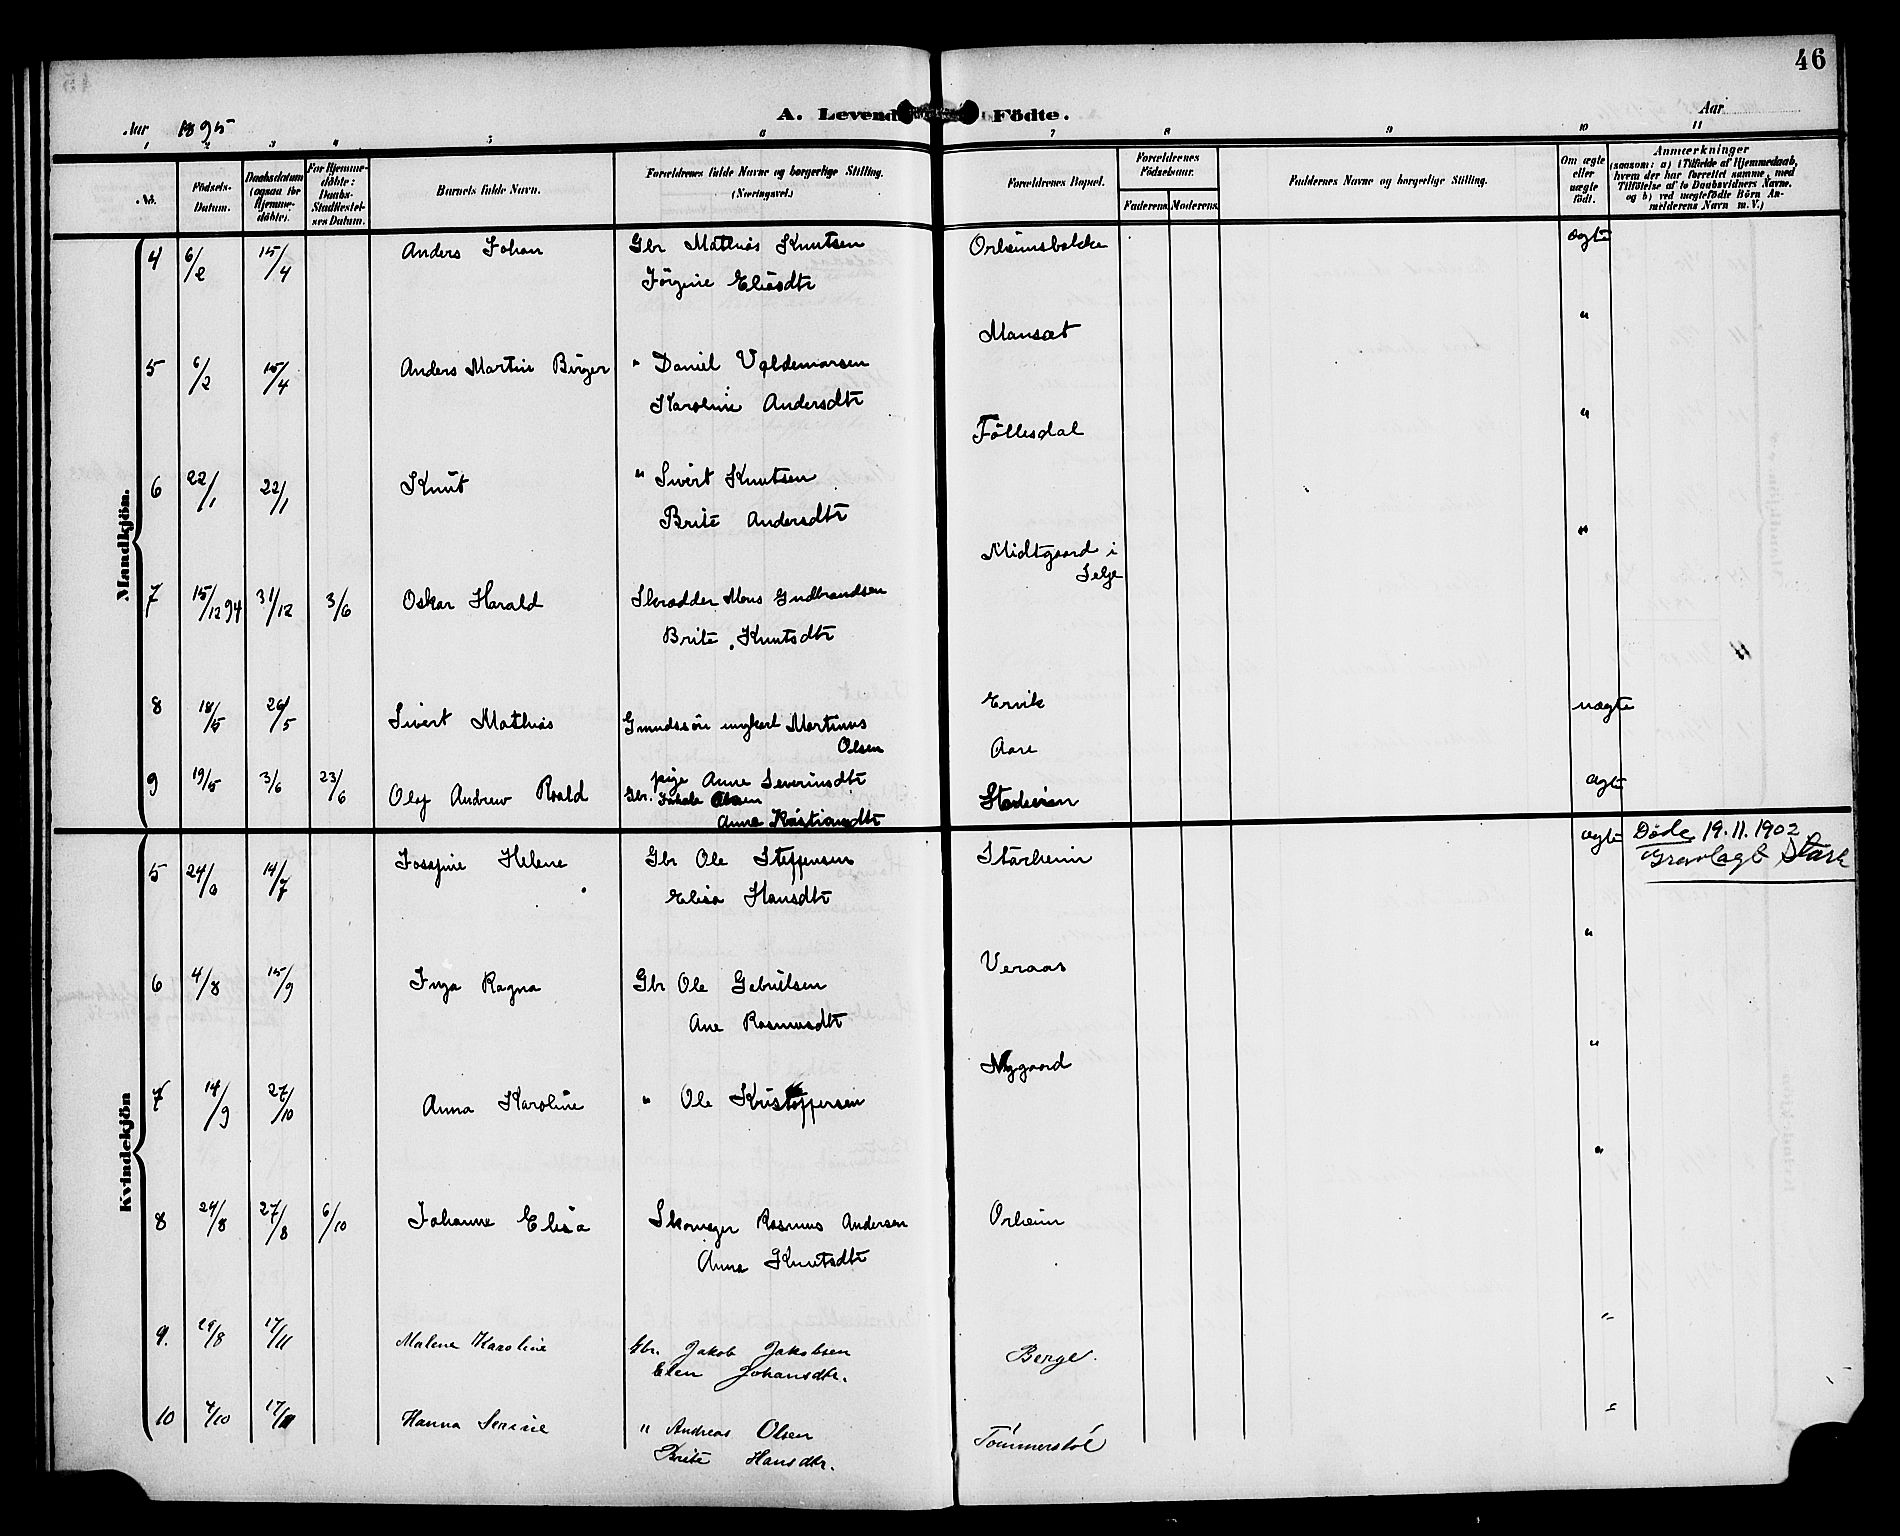 46
A. Levende Födte.
Aar 1895
Aar
1 2 3 4 5 6 7 8 9 10 11
No.
Födsels-Datum.
Daabsdatum (ogsaa for Hjemme-döbte).
For Hjemme-döbte: Daabs-Stadfæstel-ses Datum.
Barnets fulde Navn.
Forældrenes fulde Navne og borgerlige Stilling. (Næringsvei.)
Forældrenes Bopæl.
Forældrenes Födselsaar.
Faderens Moderens.
Faddernes Navne og borgerlige Stilling.
Om ægte eller uægte födt.
Anmærkninger
(saasom: a) i Tilfælde af Hjemmedaab, hvem der har forrettet samme, med Tilföielse af to Daabsvidners Navne. og b) ved uægtefödte Börn An-melderens Navn m. V.)
Mandkjön.
4 6/2 15/4 Anders Johan Gbr Mathias Knutsen Orheimsbakke ægte
Jörgine Eliasdtr
5 6/2 15/4 Anders Martin Birger " Daniel Valdemarsen Mansæt "
Karoline Andersdtr
6 22/1 22/1 Knut " Sivert Knutsen Föllesdal "
Brite Andersdtr
7 15/12 94 31/12 3/6 Oskar Harald Skrædder Mons Gudbrandsen Midtgaard i "
Selje
Brite Knutsdtr
8 18/5 26/5 Sivert Mathias Gmndssön ungkarl Martinus Ervik uægte
Olsen
pige Anne Severinsdtr Aare
9 19/5 3/6 23/6 Olaf Andrew Roald Gbr. Jakob Olsen Starheim ægte
Anne Kristiansdtr
Kvindekjön
5 24/6 14/7 Josefine Helene Gbr Ole Steffensen Starheim ægte Döde 19.11.1902
Elisa Hansdtr Gravlagt Starh
6 4/8 15/9 Inga Ragna Gbr Ole Gabrielsen Veraas "
Ane Rasmusdtr
7 14/9 27/10 Anna Karoline " Ole Kristoffersen Nygaard "
8 24/8 27/8 6/10 Johanne Elisa Skomager Rasmus Andersen Orheim "
Anna Knutsdtr
9. 29/8 17/11 Malene Karoline Gbr. Jakob Jakobsen Berge. "
Elen Johansdtr.
10 4/10 17/11 Hanna Serine " Andreas Olsen Tömmerstöl "
Brite Hansdtr.